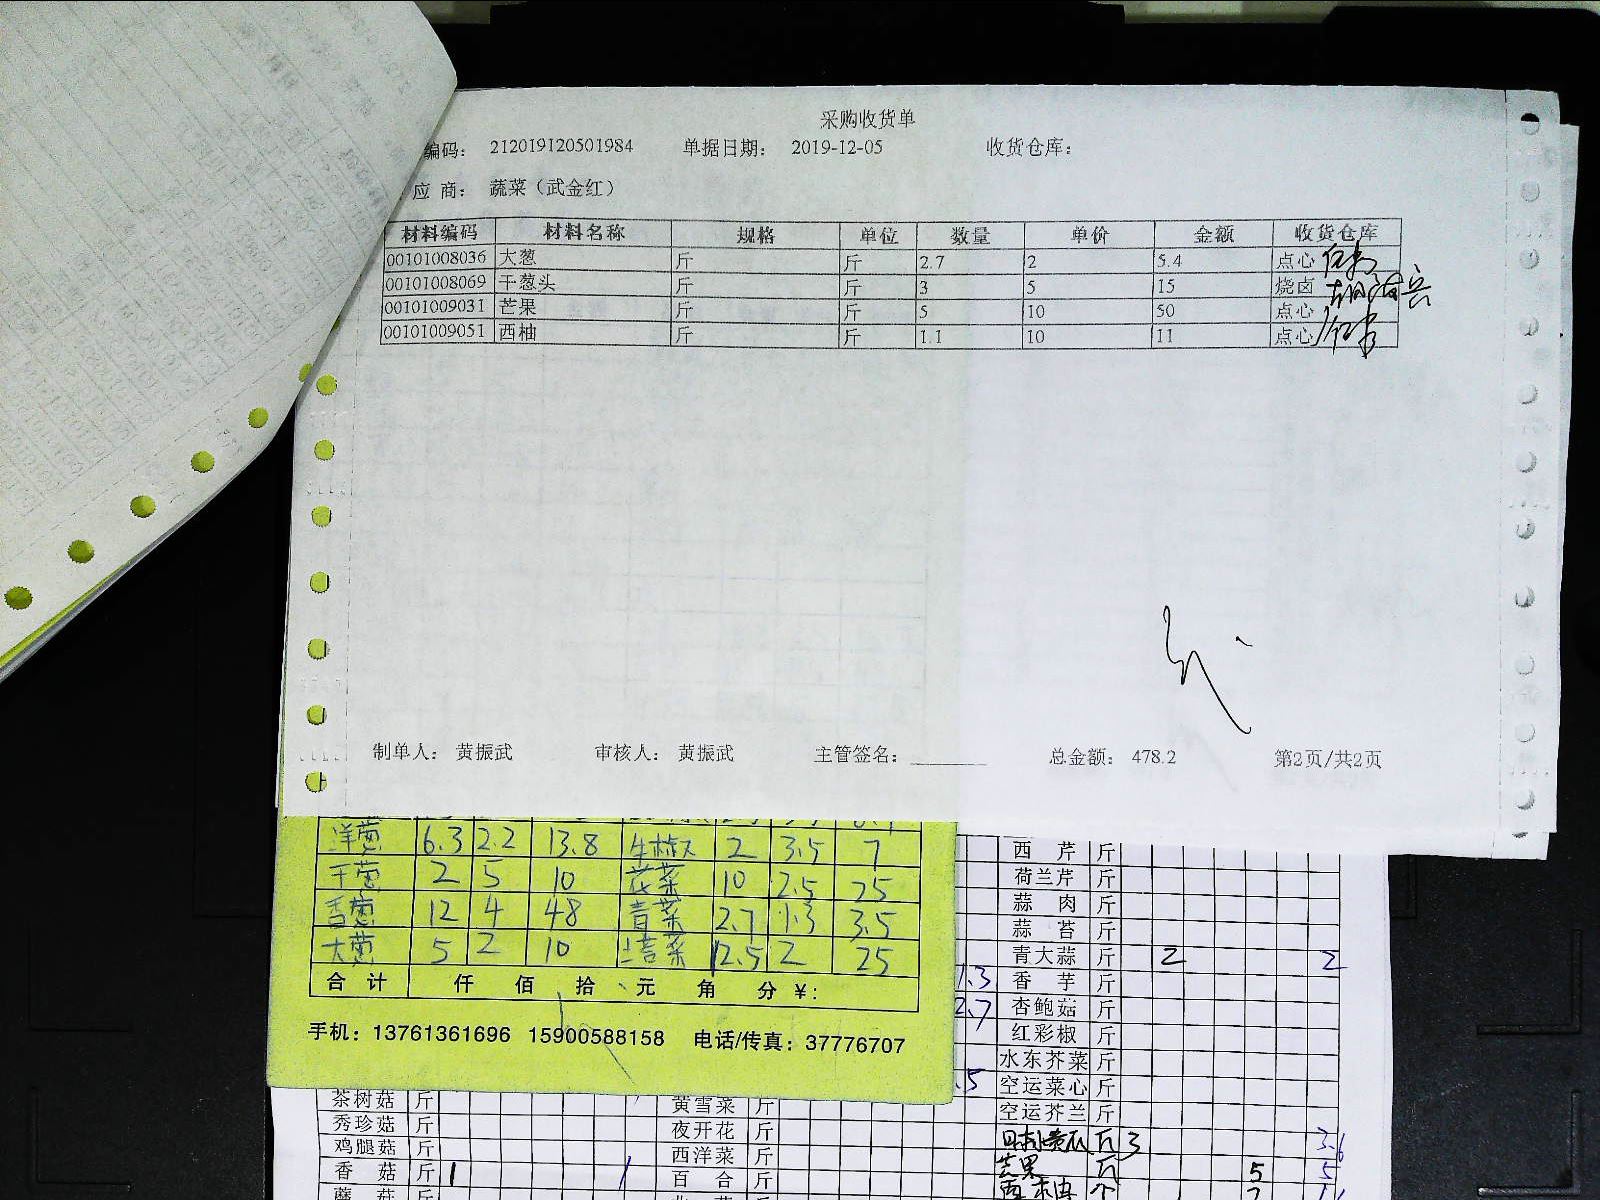 采购收货单
编码： 212019120501984 单据日期： 2019-12-05 收货仓库：
应 商： 蔬菜（武金红）
材料编码 材料名称 规格 单位 数量 单价 金额 收货仓库
00101008036 大葱 斤 斤 2.7 2 5.4 点心
00101008069 干葱头 斤 斤 3 5 15 烧卤
00101009031 芒果 斤 斤 5 10 50 点心
00101009051 西柚 斤 斤 1.1 10 11 点心
制单人： 黄振武 审核人： 黄振武 主管签名： 总金额： 478.2 第2页/共2页
洋葱 6.3 2.2 13.8 牛椒 2 3.5 7
干葱 2 5 10 花菜 10 2.5 25
香葱 12 4 48 青菜 2.7 1.3 3.5
大葱 5 2 10 12.5 2 25
合 计 仟 佰 拾 元 角 分 ￥:
手机：13761361696 15900588158 电话/传真：37776707
西 芹 斤
荷兰芹 斤
蒜 肉 斤
蒜 苔 斤
青大蒜 斤 2 2
1.3 香 芋 斤
2.7 杏鲍菇 斤
红彩椒 斤
水东芥菜 斤
.5 空运菜心 斤
空运芥兰 斤
茶树菇 斤 黄雪菜 斤
秀珍菇 斤 夜开花 斤
斤 3 3.6
鸡腿菇 斤 西洋菜 斤
芒果 斤 5 5
香 菇 斤 1 1 百 合 斤
西柚 个
蘑 菇 斤